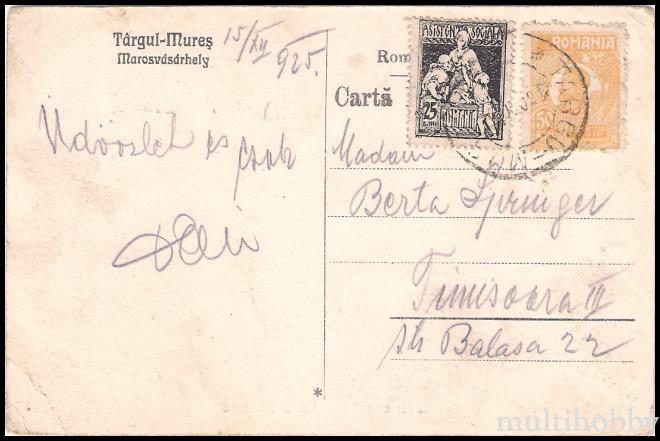 Târgul-Mureş
Marosvásárhely
15/XII
925.
Üdvözlet és
csók
Rom
Cartă
ASISTENTA SOCIALA
25
BANI
ROMANIA
ROMANIA
50
TÂRGU
MU
Madam
Berta Springer
Timisoara III
str Balasa 22
*
multihobby